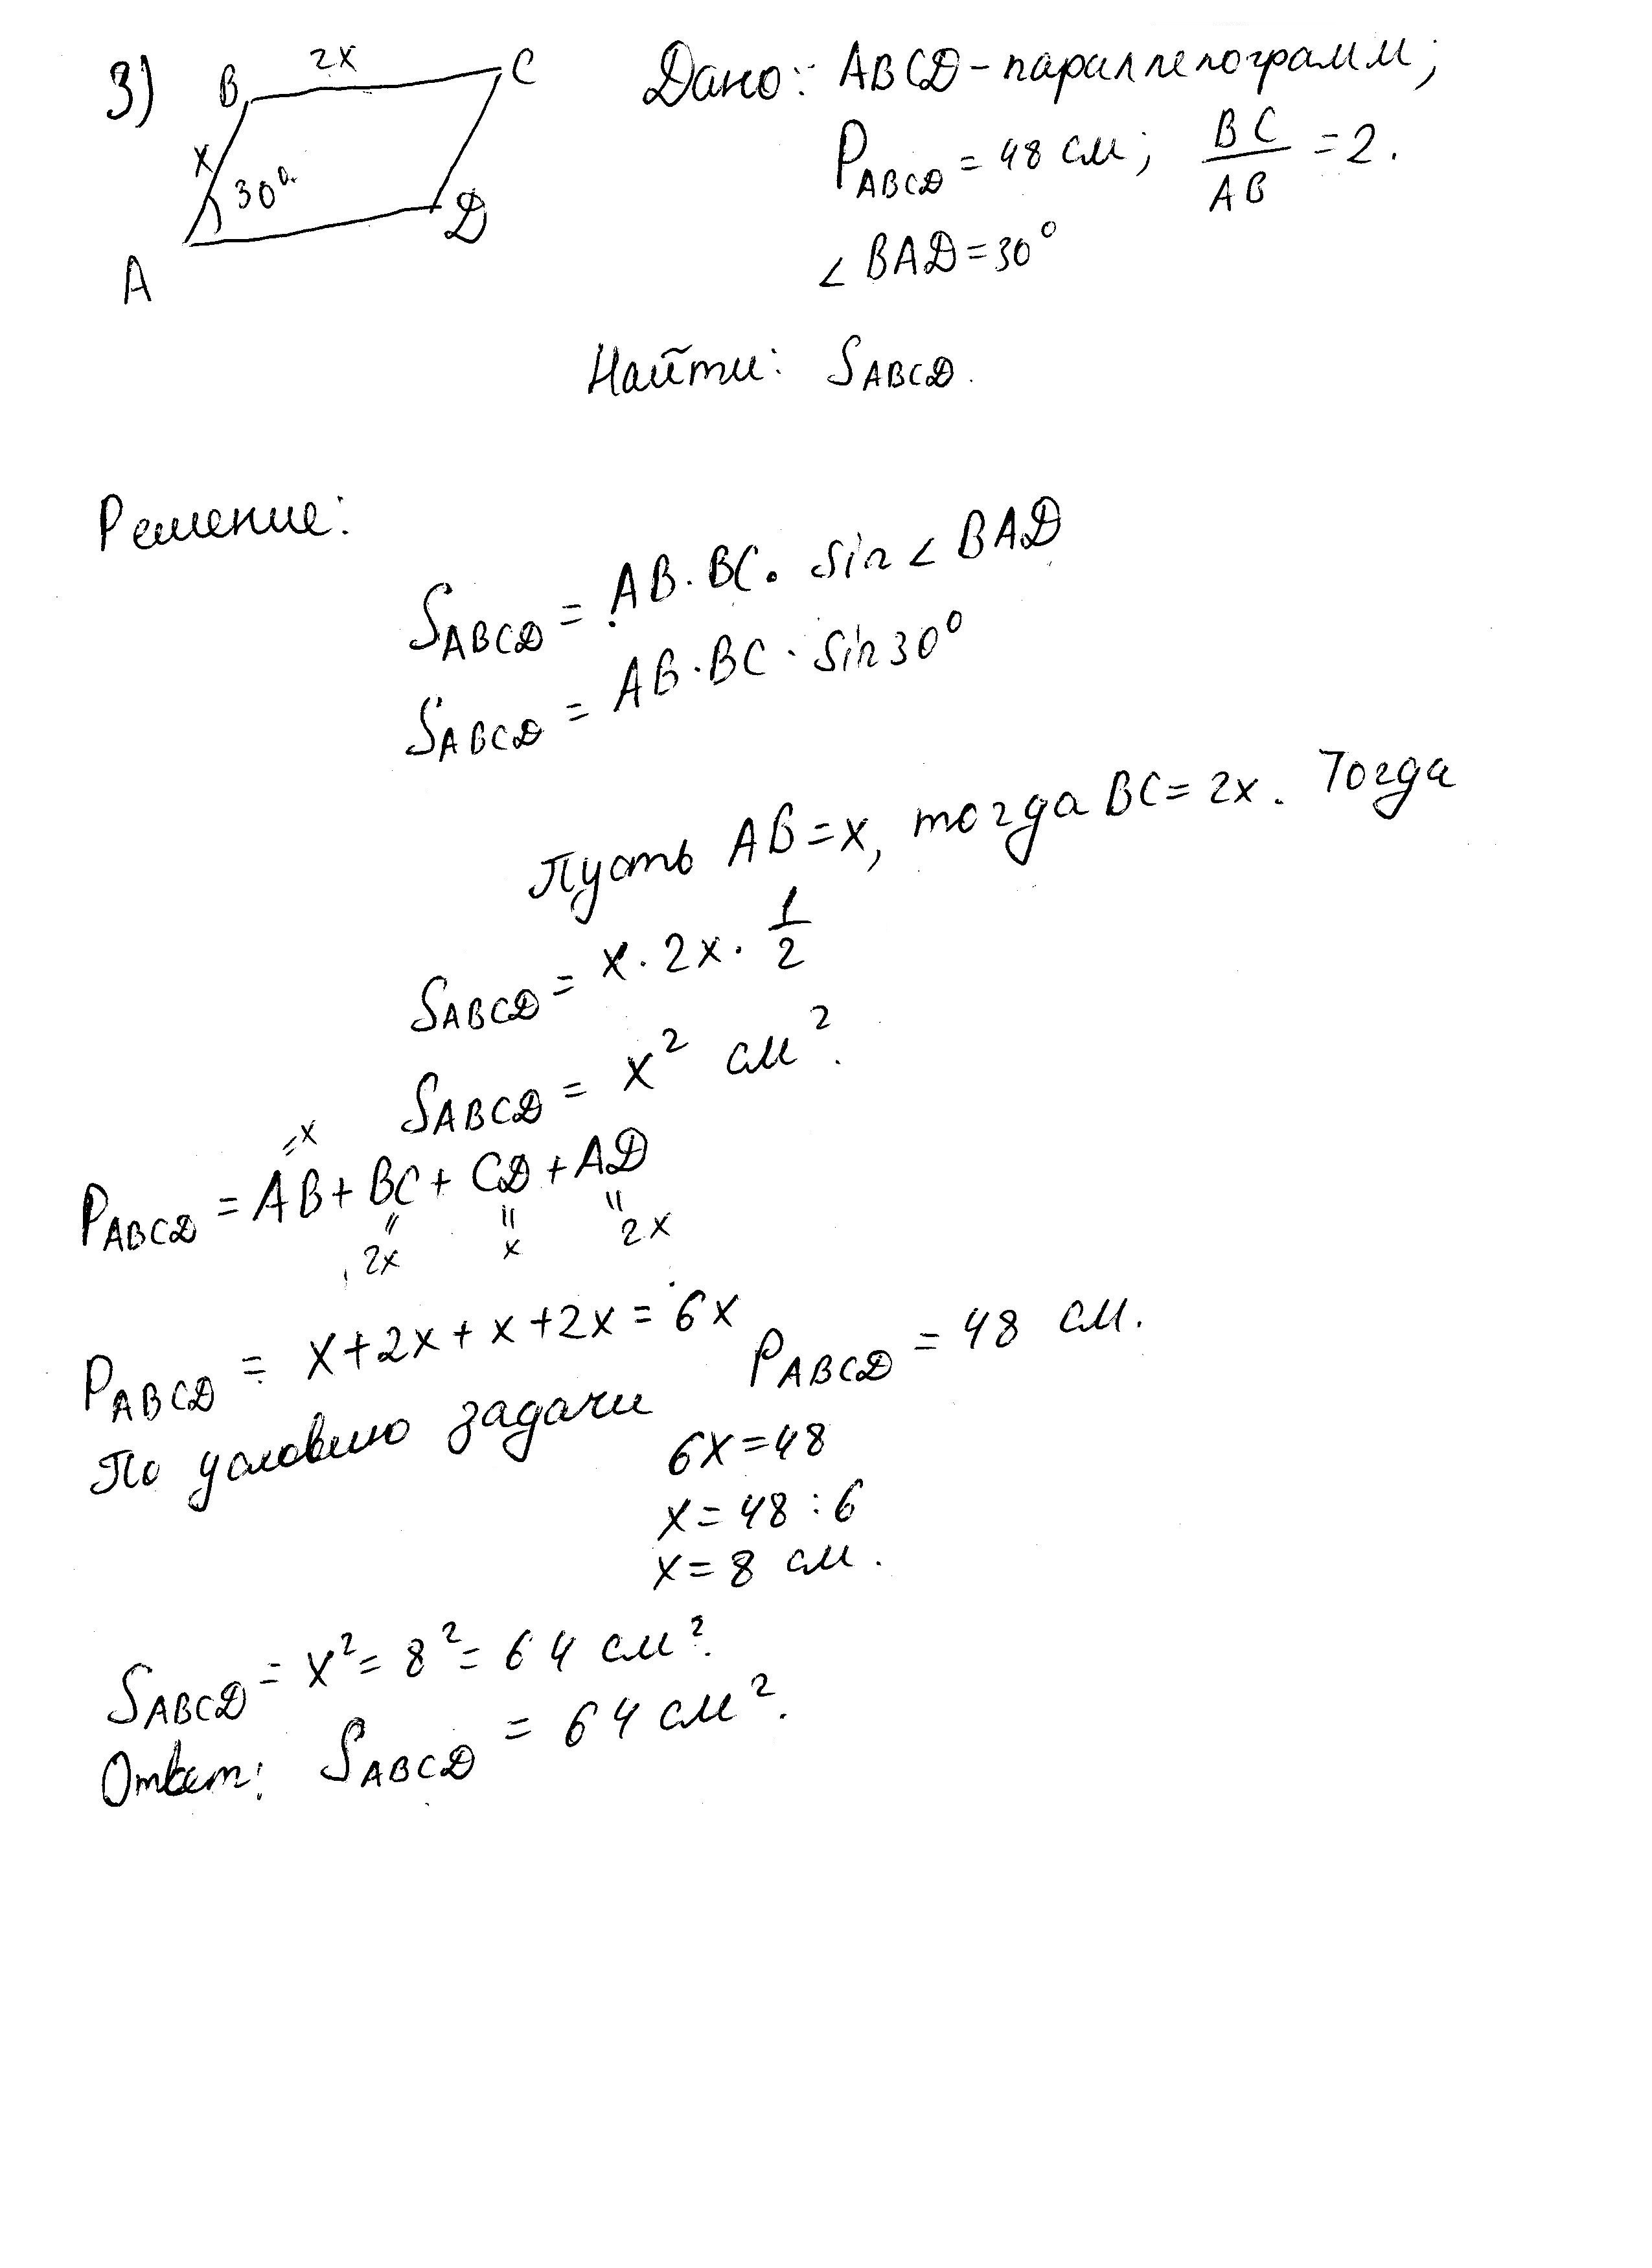 3) B 2x C Дано: ABCD - параллелограмм;
x 30° P_ABCD = 48 см; BC/AB = 2.
A D ∠ BAD = 30°
Найти: S_ABCD.
Решение:
S_ABCD = AB · BC · sin ∠ BAD
S_ABCD = AB · BC · sin 30°
Пусть AB = x, тогда BC = 2x. Тогда
S_ABCD = x · 2x · 1/2
S_ABCD = x² см².
=x
P_ABCD = AB + BC + CD + AD
" " " "
2x x 2x
P_ABCD = x + 2x + x + 2x = 6x
По условию задачи P_ABCD = 48 см.
6x = 48
x = 48 : 6
x = 8 см.
S_ABCD = x² = 8² = 64 см².
Ответ: S_ABCD = 64 см².